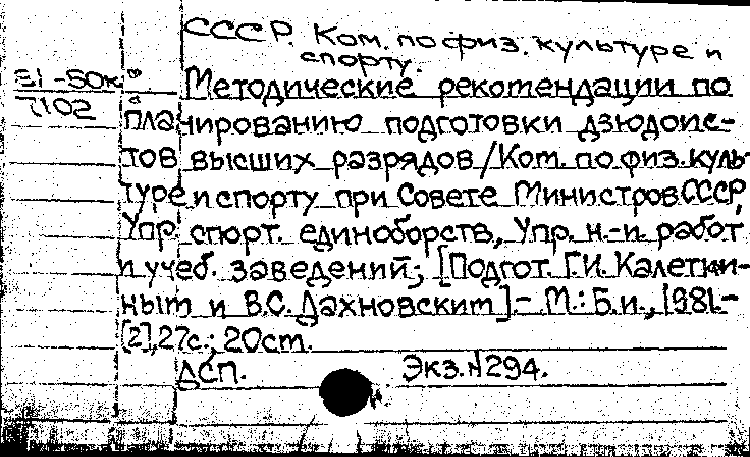 СССР. Ком. по физ. культуре и
спорту.
81-50к
7102
Методические рекомендации по
планированию подготовки дзюдоис-
тов высших разрядов/Ком. по физ. куль-
туре и спорту при Совете Министров СССР,
Упр. спорт. единоборств, Упр. н.-и. работ
и учеб. заведений; [Подгот. Г.И. Калетки-
ным и В.С. Дахновским]. - М.: Б.и., 1981.-
[2], 27с.; 20см.
ДСП. Экз. №294.